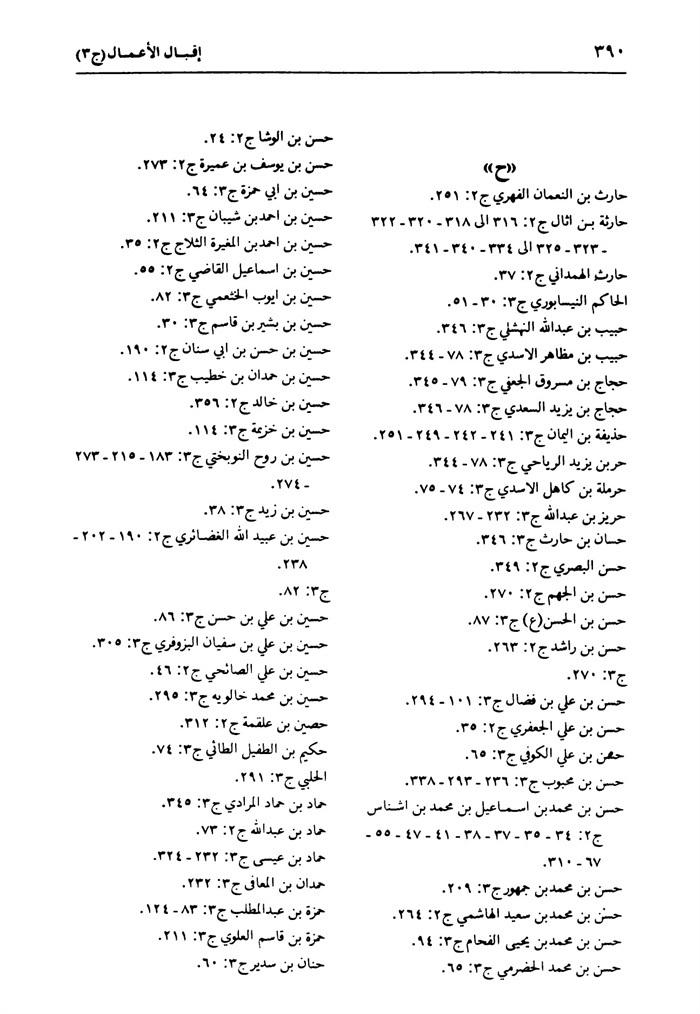 ٣٩٠
إقبال الأعمال (ج٣)
«ح»
حارث بن النعمان الفهري ج٢: ٢٥١.
حارثة بن اثال ج٢: ٣١٦ الى ٣١٨ - ٣٢٠ - ٣٢٢
- ٣٢٣ - ٣٢٥ الى ٣٣٤ - ٣٤٠ - ٣٤١.
حارث الهمداني ج٢: ٣٧.
الحاكم النيسابوري ج٣: ٣٠ - ٥١.
حبيب بن عبدالله النهشلي ج٣: ٣٤٦.
حبيب بن مظاهر الاسدي ج٣: ٧٨ - ٣٤٤.
حجاج بن مسروق الجعفي ج٣: ٧٩ - ٣٤٥.
حجاج بن يزيد السعدي ج٣: ٧٨ - ٣٤٦.
حذيفة بن اليمان ج٣: ٢٤١ - ٢٤٢ - ٢٤٩ - ٢٥١.
حربن يزيد الرياحي ج٣: ٧٨ - ٣٤٤.
حرملة بن كاهل الاسدي ج٣: ٧٤ - ٧٥.
حريز بن عبدالله ج٣: ٢٣٢ - ٢٦٧.
حسان بن حارث ج٣: ٣٤٦.
حسن البصري ج٢: ٣٤٩.
حسن بن الجهم ج٢: ٢٧٠.
حسن بن الحسن(ع) ج٣: ٨٧.
حسن بن راشد ج٢: ٢٦٣.
ج٣: ٢٧٠.
حسن بن علي بن فضال ج٣: ١٠١ - ٢٩٤.
حسن بن علي الجعفري ج٢: ٣٥.
حسن بن علي الكوفي ج٣: ٦٥.
حسن بن محبوب ج٣: ٢٣٦ - ٢٩٣ - ٣٣٨.
حسن بن محمدبن اسماعيل بن محمد بن اشناس
ج٢: ٣٤ - ٣٥ - ٣٧ - ٣٨ - ٤١ - ٤٧ - ٥٥ -
٦٧ - ٣١٠.
حسن بن محمدبن جمهور ج٣: ٢٠٩.
حسن بن محمدبن سعيد الهاشمي ج٢: ٢٦٤.
حسن بن محمدبن يحيى الفحام ج٣: ٩٤.
حسن بن محمد الحضرمي ج٣: ٦٥.
حسن بن الوشا ج٢: ٢٤.
حسن بن يوسف بن عميرة ج٢: ٢٧٣.
حسين بن ابي حمزة ج٣: ٦٤.
حسين بن احمدبن شيبان ج٣: ٢١١.
حسين بن احمدبن المغيرة الثلاج ج٢: ٣٥.
حسين بن اسماعيل القاضي ج٢: ٥٥.
حسين بن ايوب الخثعمي ج٣: ٨٢.
حسين بن بشير بن قاسم ج٣: ٣٠.
حسين بن حسن بن ابي سنان ج٢: ١٩٠.
حسين بن حمدان بن خطيب ج٣: ١١٤.
حسين بن خالد ج٢: ٣٥٦.
حسين بن خزيمة ج٣: ١١٤.
حسين بن روح النوبختي ج٣: ١٨٣ - ٢١٥ - ٢٧٣
- ٢٧٤.
حسين بن زيد ج٣: ٣٨.
حسين بن عبيد الله الغضائري ج٢: ١٩٠ - ٢٠٢ -
٢٣٨.
ج٣: ٨٢.
حسين بن علي بن حسن ج٣: ٨٦.
حسين بن علي بن سفيان البزوفري ج٣: ٣٠٥.
حسين بن علي الصائحي ج٢: ٤٦.
حسين بن محمد خالويه ج٣: ٢٩٥.
حصين بن علقمة ج٢: ٣١٢.
حكيم بن الطفيل الطائي ج٣: ٧٤.
الحلبي ج٣: ٢٩١.
حماد بن حماد المرادي ج٣: ٣٤٥.
حماد بن عبدالله ج٢: ٧٣.
حماد بن عيسى ج٣: ٢٣٢ - ٣٢٤.
حمدان بن المعافى ج٣: ٢٣٢.
حمزة بن عبدالمطلب ج٣: ٨٣ - ١٢٤.
حمزة بن قاسم العلوي ج٣: ٢١١.
حنان بن سدير ج٣: ٦٠.